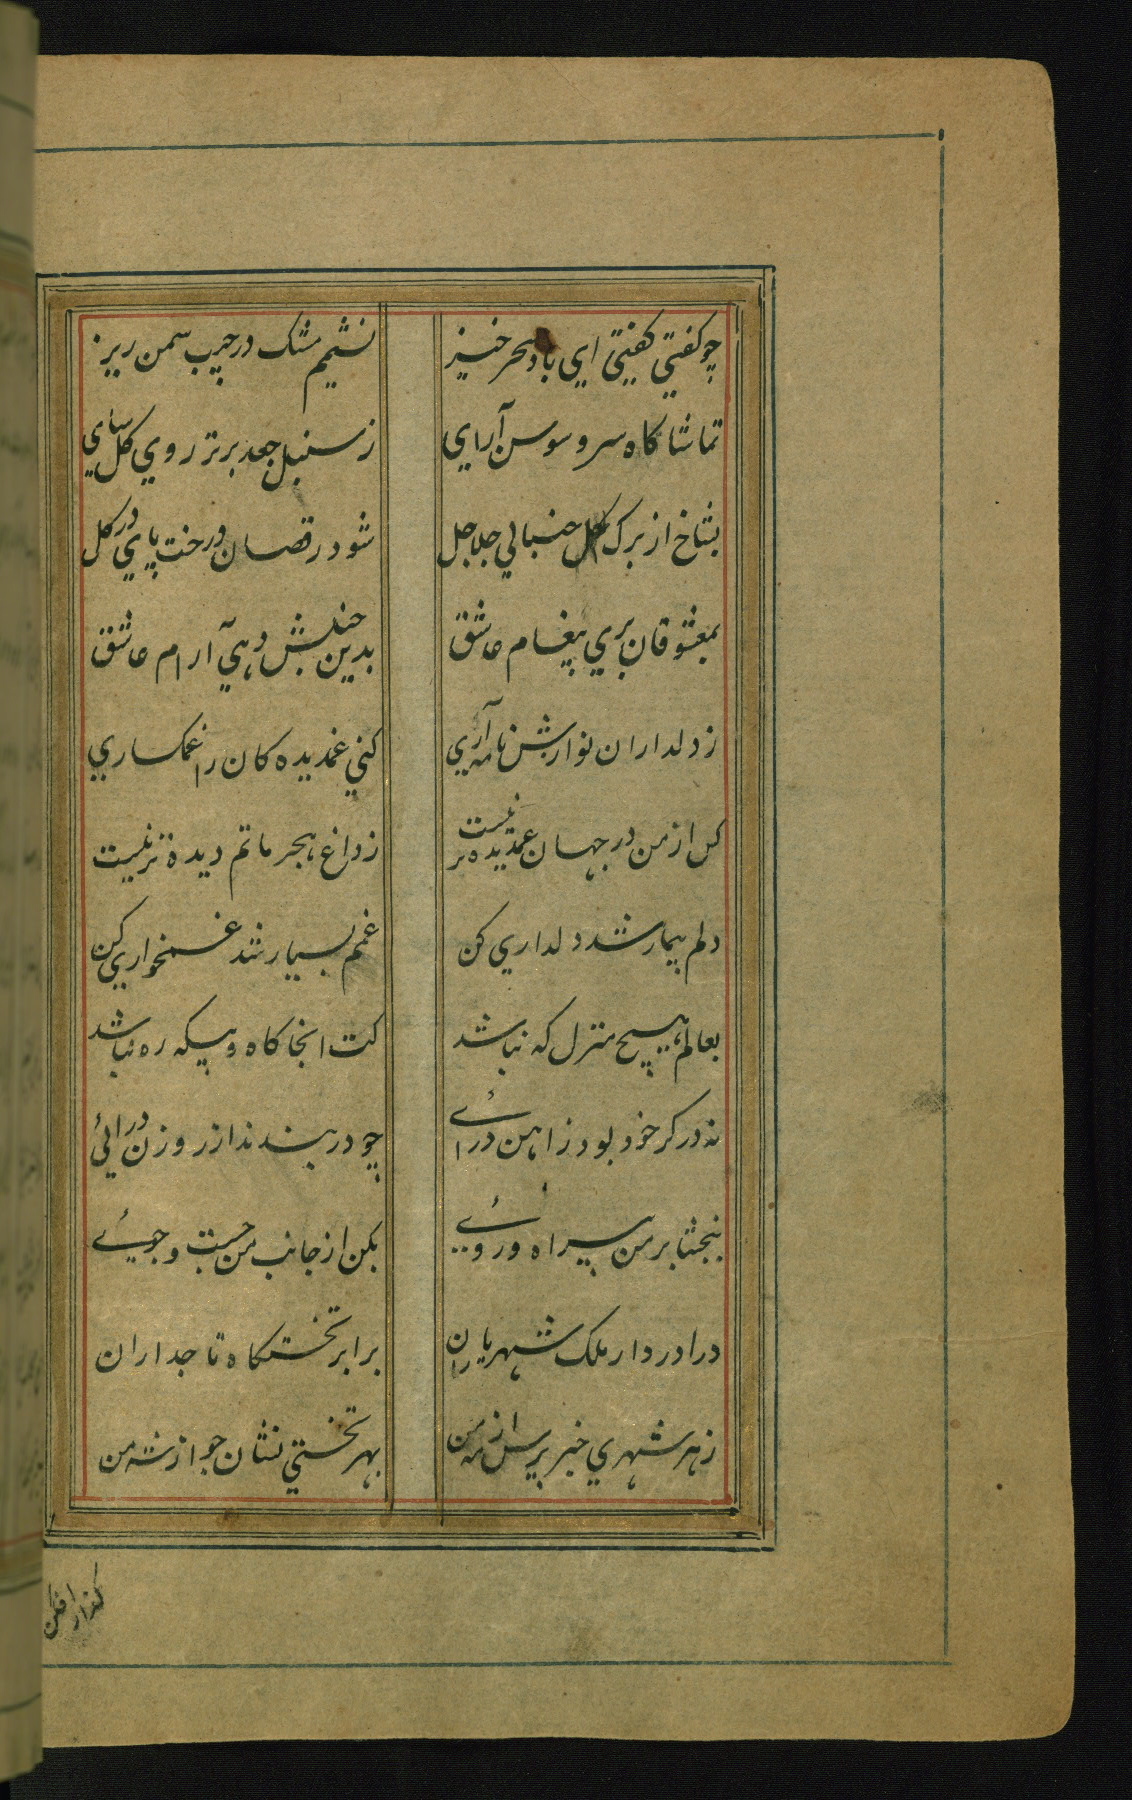 چو گفتي گفتي اي باد سحر خيز
نشميم مشك در جيب سمن ريز
تماشا كاه سرو سوسن آراي
ز سنبل جعد بر تر روي كل ساي
بشاخ از برك كل جنباني جلاجل
شود رقصان درخت پاي در كل
بمعشوقان بري پيغام عاشق
بدين جنبش دهي آرام عاشق
ز دلداران نوازش نامه آري
كني غمديده كان را غمكساري
كس از من در جهان غمديده تر نيست
ز داغ هجر ماتم ديده تر نيست
دلم بيمار شد دلداري كن
غمم بسيار شد غمخواري كن
بعالم هيچ منزل كه نباشد
كت انجا كاه و بيكه ره نباشد
نه در كر خود بود ز اهن درائے
چو در بندند از روزن درائي
ببخشا بر من بيراه و روئے
بكن از جانب من جست و جوئے
درا در دار ملك شهرياران
برابر تختكاه تاجداران
ز هر شهري خبر پرس از مه من
بهر تختي نشان جو از شه من
كذار افكن